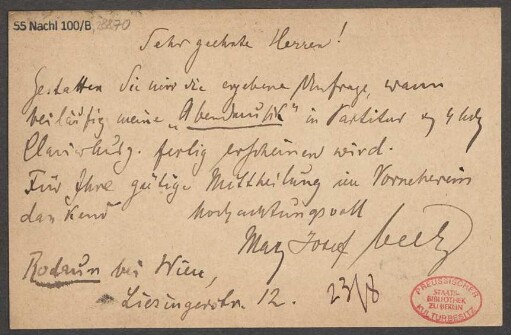 55 Nachl 100/B, 3270
Sehr geehrte Herren!
Gestatten Sie mir die ergebene Anfrage, wann
beiläufig meine „Abendmusik" in Partitur u 4 hdg
Clavierausg. fertig erscheinen wird.
Für Ihre gütige Mittheilung im Vorneherein
dankend hochachtungsvoll
Max Josef Beer
Rodaun bei Wien,
Liesingerstr. 12. 23/8
PREUSSISCHER
STAATS-
BIBLIOTHEK
ZU BERLIN
KULTURBESITZ